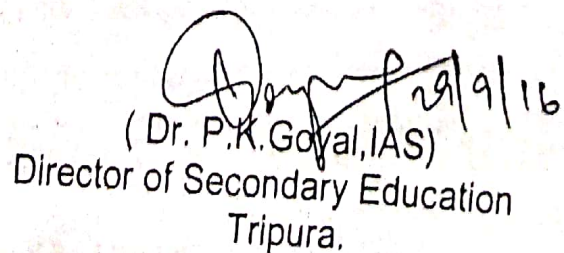 29/9/16
( Dr. P.K.Goyal,IAS)
Director of Secondary Education
Tripura.